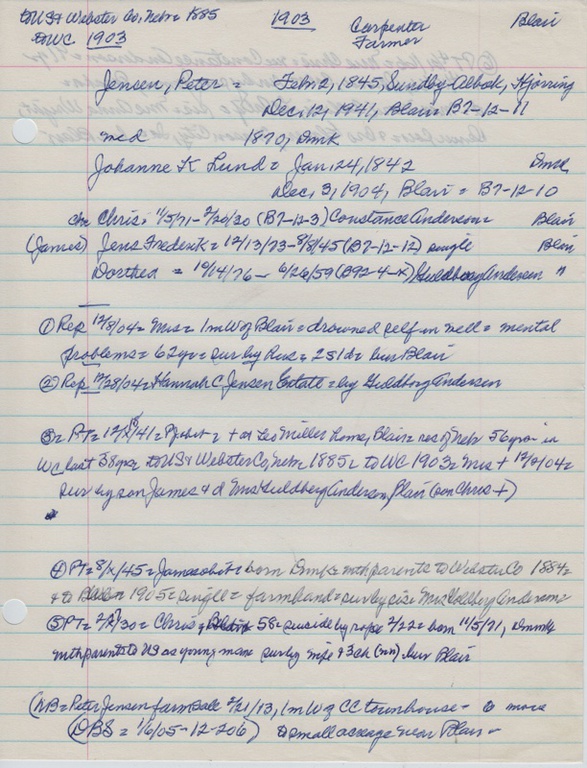 to US & Webster Co, Nebr 1885 1903 Carpenter Blair
to WC 1903 Farmer
Jensen, Peter = Febr 2, 1845, Sundby-Albæk, Hjörring
Dec, 12, 1941, Blair = B7-12-11
md 1870, Dmk
Johanne K Lund = Jan, 24, 1842 Dmk
Dec, 3, 1904, Blair = B7-12-10
ch = Chris = 11/5/71 - 2/20/20 (B7-12-3) Constance Anderson = Blair
(James) Jens Frederik = 12/13/73 - 8/8/45 (B7-12-12) single Blair
Dorthea = 10/14/76 - 6/26/59 (B92-4-x) Guldborg Andersen "
① Rep 12/8/04 = Mrs = 1 m W of Blair = drowned self in well = mental
problems = 62 yr = sur by hus = 2 s 1 d = bur Blair
② Rep 12/28/04 = Hannah C Jensen Estate = by Guldborg Andersen
③ = PT = 12/18/41 = P = obit = + at Leo Miller home, Blair = res of Nebr 56 yrs = in
WC last 38 yrs = to US & Webster Co, Nebr 1885 = to WC 1903 = Mrs + 12/3/04 =
sur by son James & d Mrs Guldborg Andersen, Blair (son Chris +)
④ PT = 8/x/45 = James obit = born Dmk = with parents to Webster Co 1884 =
& to Blair 1905 = single = farmhand = sur by sis = Mrs Golberg Anderson
⑤ PT = 2/27/30 = Chris, Blair = 58 = suicide by rope 2/22 = born 11/5/71, Dmmk
with parents to US as young man = sur by wife & 3 ch (nn) = bur Blair
(NB = Peter Jensen farm sale 2/21/13, 1 m W of CC townhouse - to move
(DBS = 1/6/05 - 12-206) to small acreage near Blair -